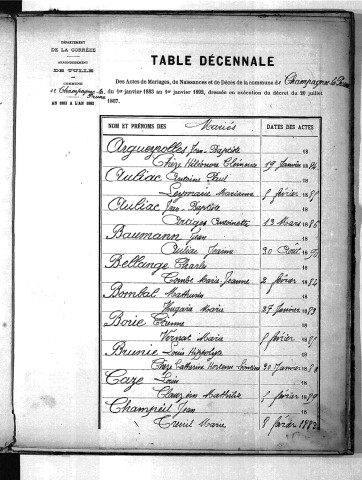 DÉPARTEMENT
DE LA CORRÈZE
ARRONDISSEMENT
DE TULLE
COMMUNE
de Champagnac-la-Prune
AN 1883 A L'AN 1893
TABLE DÉCENNALE
Des Actes de Mariages, de Naissances et de Décès de la commune de Champagnac-la-Prune
du 1er janvier 1883 au 1er janvier 1893, dressée en exécution du décret du 20 juillet
1807.
NOM ET PRÉNOMS DES Mariés DATES DES ACTES
Jean Baptiste 18
19 Janvier 18
Auliac Antoine Paul 18
Leymarie Marianne février 18
Auliac Jean Baptiste 18
Antoinette 13 Mars 1885
Baumann Jean 18
Auliac Jeanne 30 Août 1890
Bellange Charles 18
Combe Marie-Jeanne 2 février 18
Bombal Mathurin 18
Marie 27 Janvier 18
Borie Etienne 18
Vergnat Marie février 18
Brunie Louis Hippolyte 18
Catherine Janvier 18
Caze Louis 18
Mathilde février 1889
Champeil Jean 18
Marie février 18